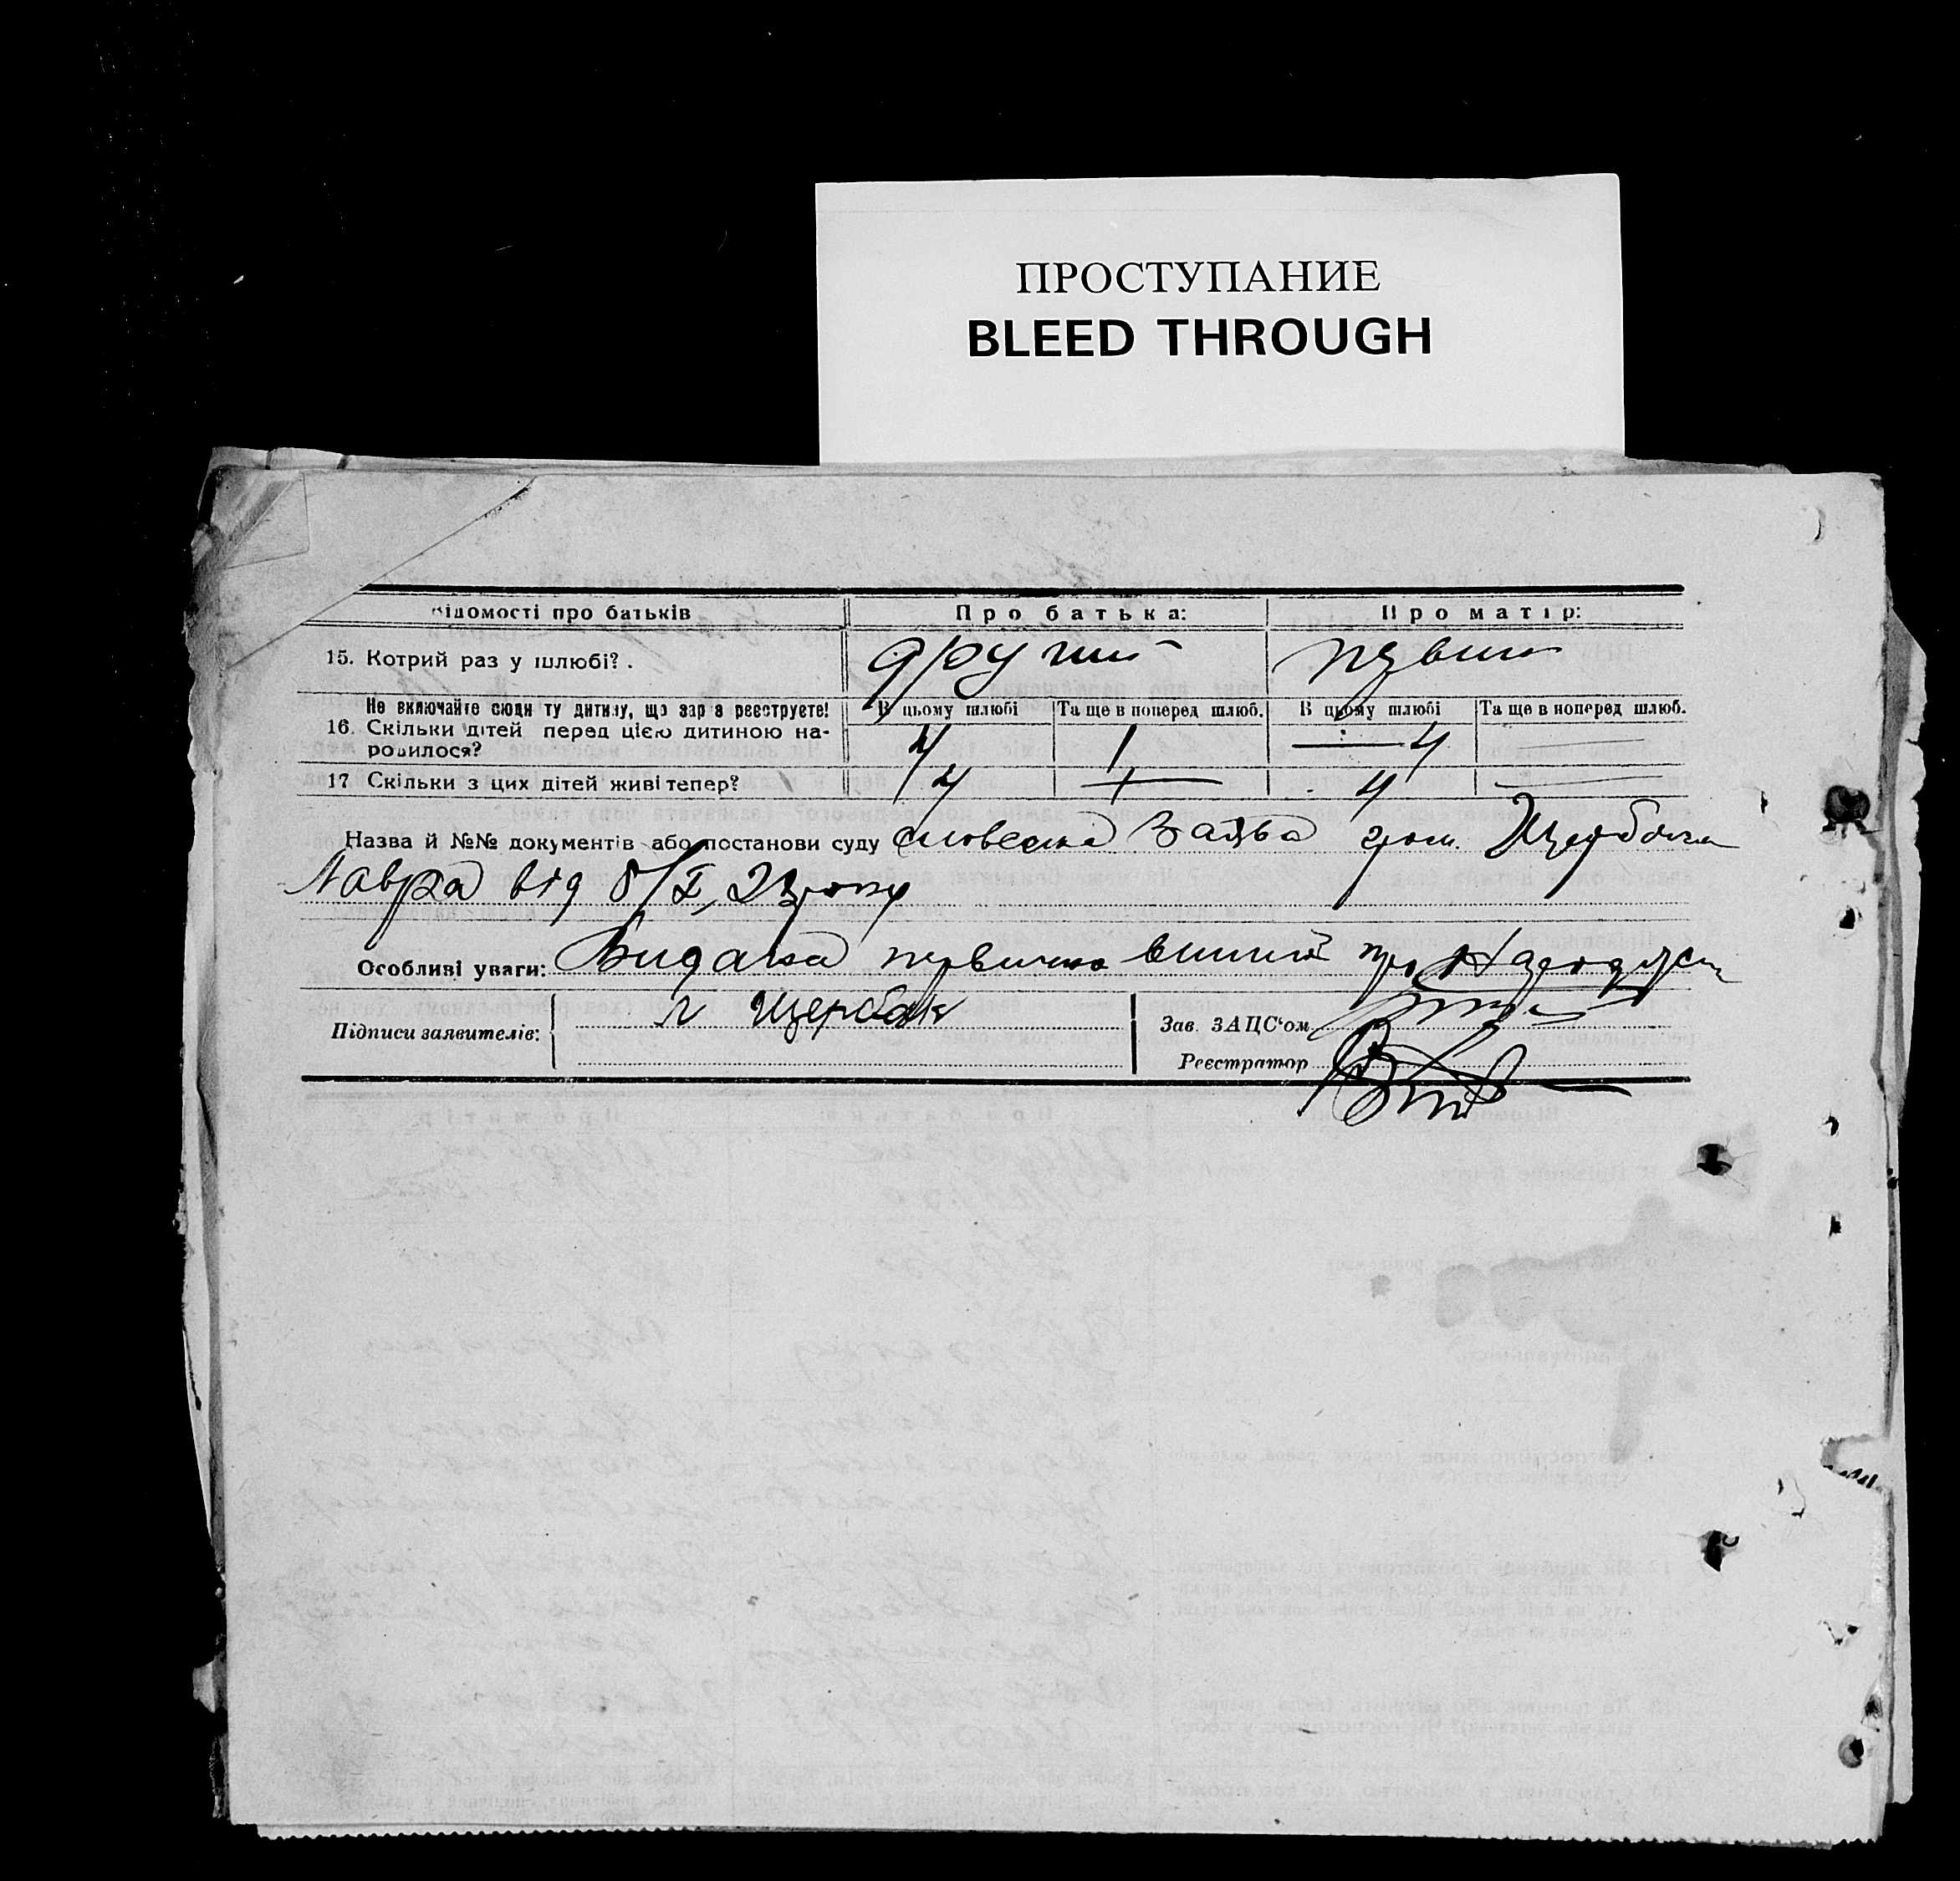 ПРОСТУПАНИЕ
BLEED THROUGH
ідомості про батьків
Про батька:
Про матір:
15. Котрий раз у шлюбі?.
другий
первий
Не включайте сюди ту дитину, що зараз реєструєте!
В цьому шлюбі
Та ще в поперед шлюб.
В цьому шлюбі
Та ще в поперед шлюб.
16. Скільки дітей перед цією дитиною на-
родилося?
4
1
4
17 Скільки з цих дітей живі тепер?
4
4
Назва й №№ документів або постанови суду словесна Заява гром. Щербака
Лавра від 8/X,
Особливі уваги: Видана первична
Підписи заявителів:
Л Щербак
Зав. ЗАЦС'ом
Реєстратор